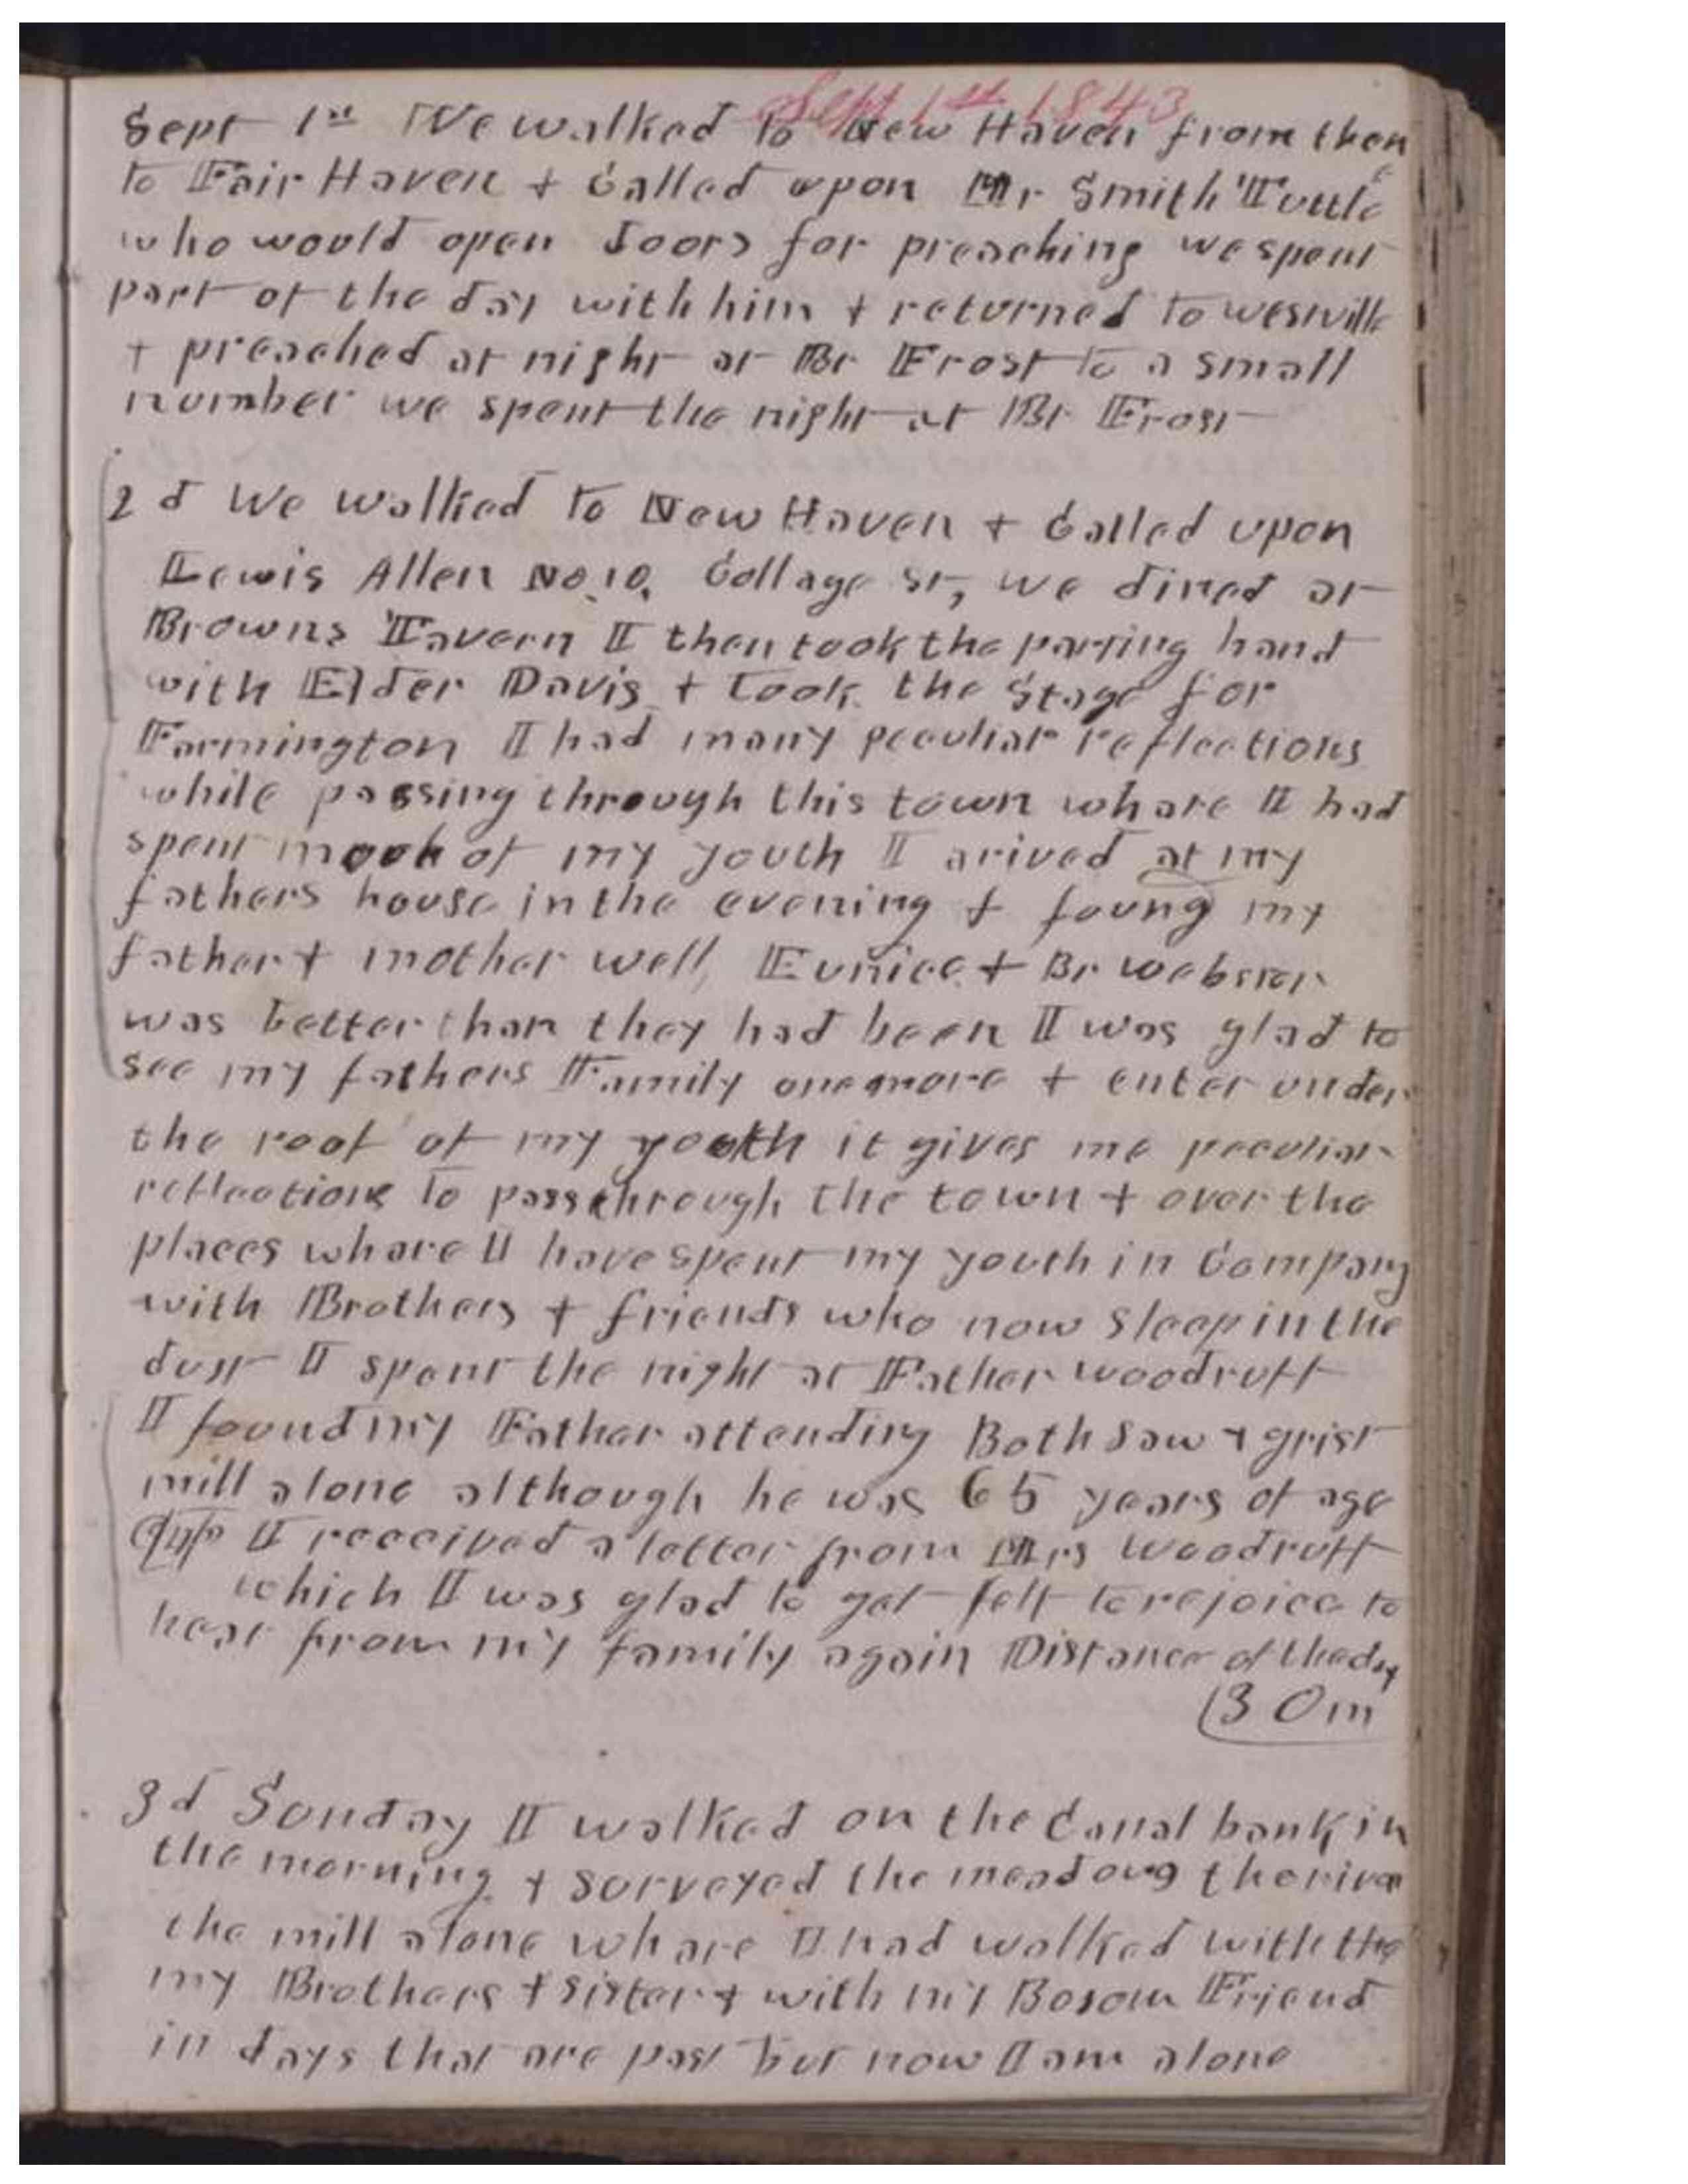 Sept 1st 1843
Sept 1st We walked to New Haven from then
to Fair Haven + Called upon Mr Smith Tuttle
who would open doors for preaching we spent
part of the day with him + returned to westville
+ preached at night at Br Frost to a small
number we spent the night at Br Frost
2d We walked to New Haven + Called upon
Lewis Allen No 10, Collage st, we dined at
Browns Tavern I then took the parting hand
with Elder Davis + took the Stage for
Farmington I had many peculiar reflections
while passing through this town whare I had
spent much of my youth I arived at my
fathers house in the evening + foung my
father + mother well, Eunice + Br webster
was better than they had been I was glad to
see my fathers Family onemore + enter under
the roof of my youth it gives me peculiar
reflections to pass through the town + over the
places whare I have spent my youth in Company
with Brothers + friends who now sleep in the
dust I spent the night at Father woodruff
I found my Father attending Both Saw + grist
mill alone although he was 65 years of age
I received a letter from Mrs Woodruff
which I was glad to get felt to rejoice to
hear from my family again Distance of the day
30m
3d Sunday I walked on the Canal bank in
the morning + surveyed the meadows the river
the mill alone whare I had walked with the
my Brothers + sister + with my Bosom Friend
in days that are past but now I am alone